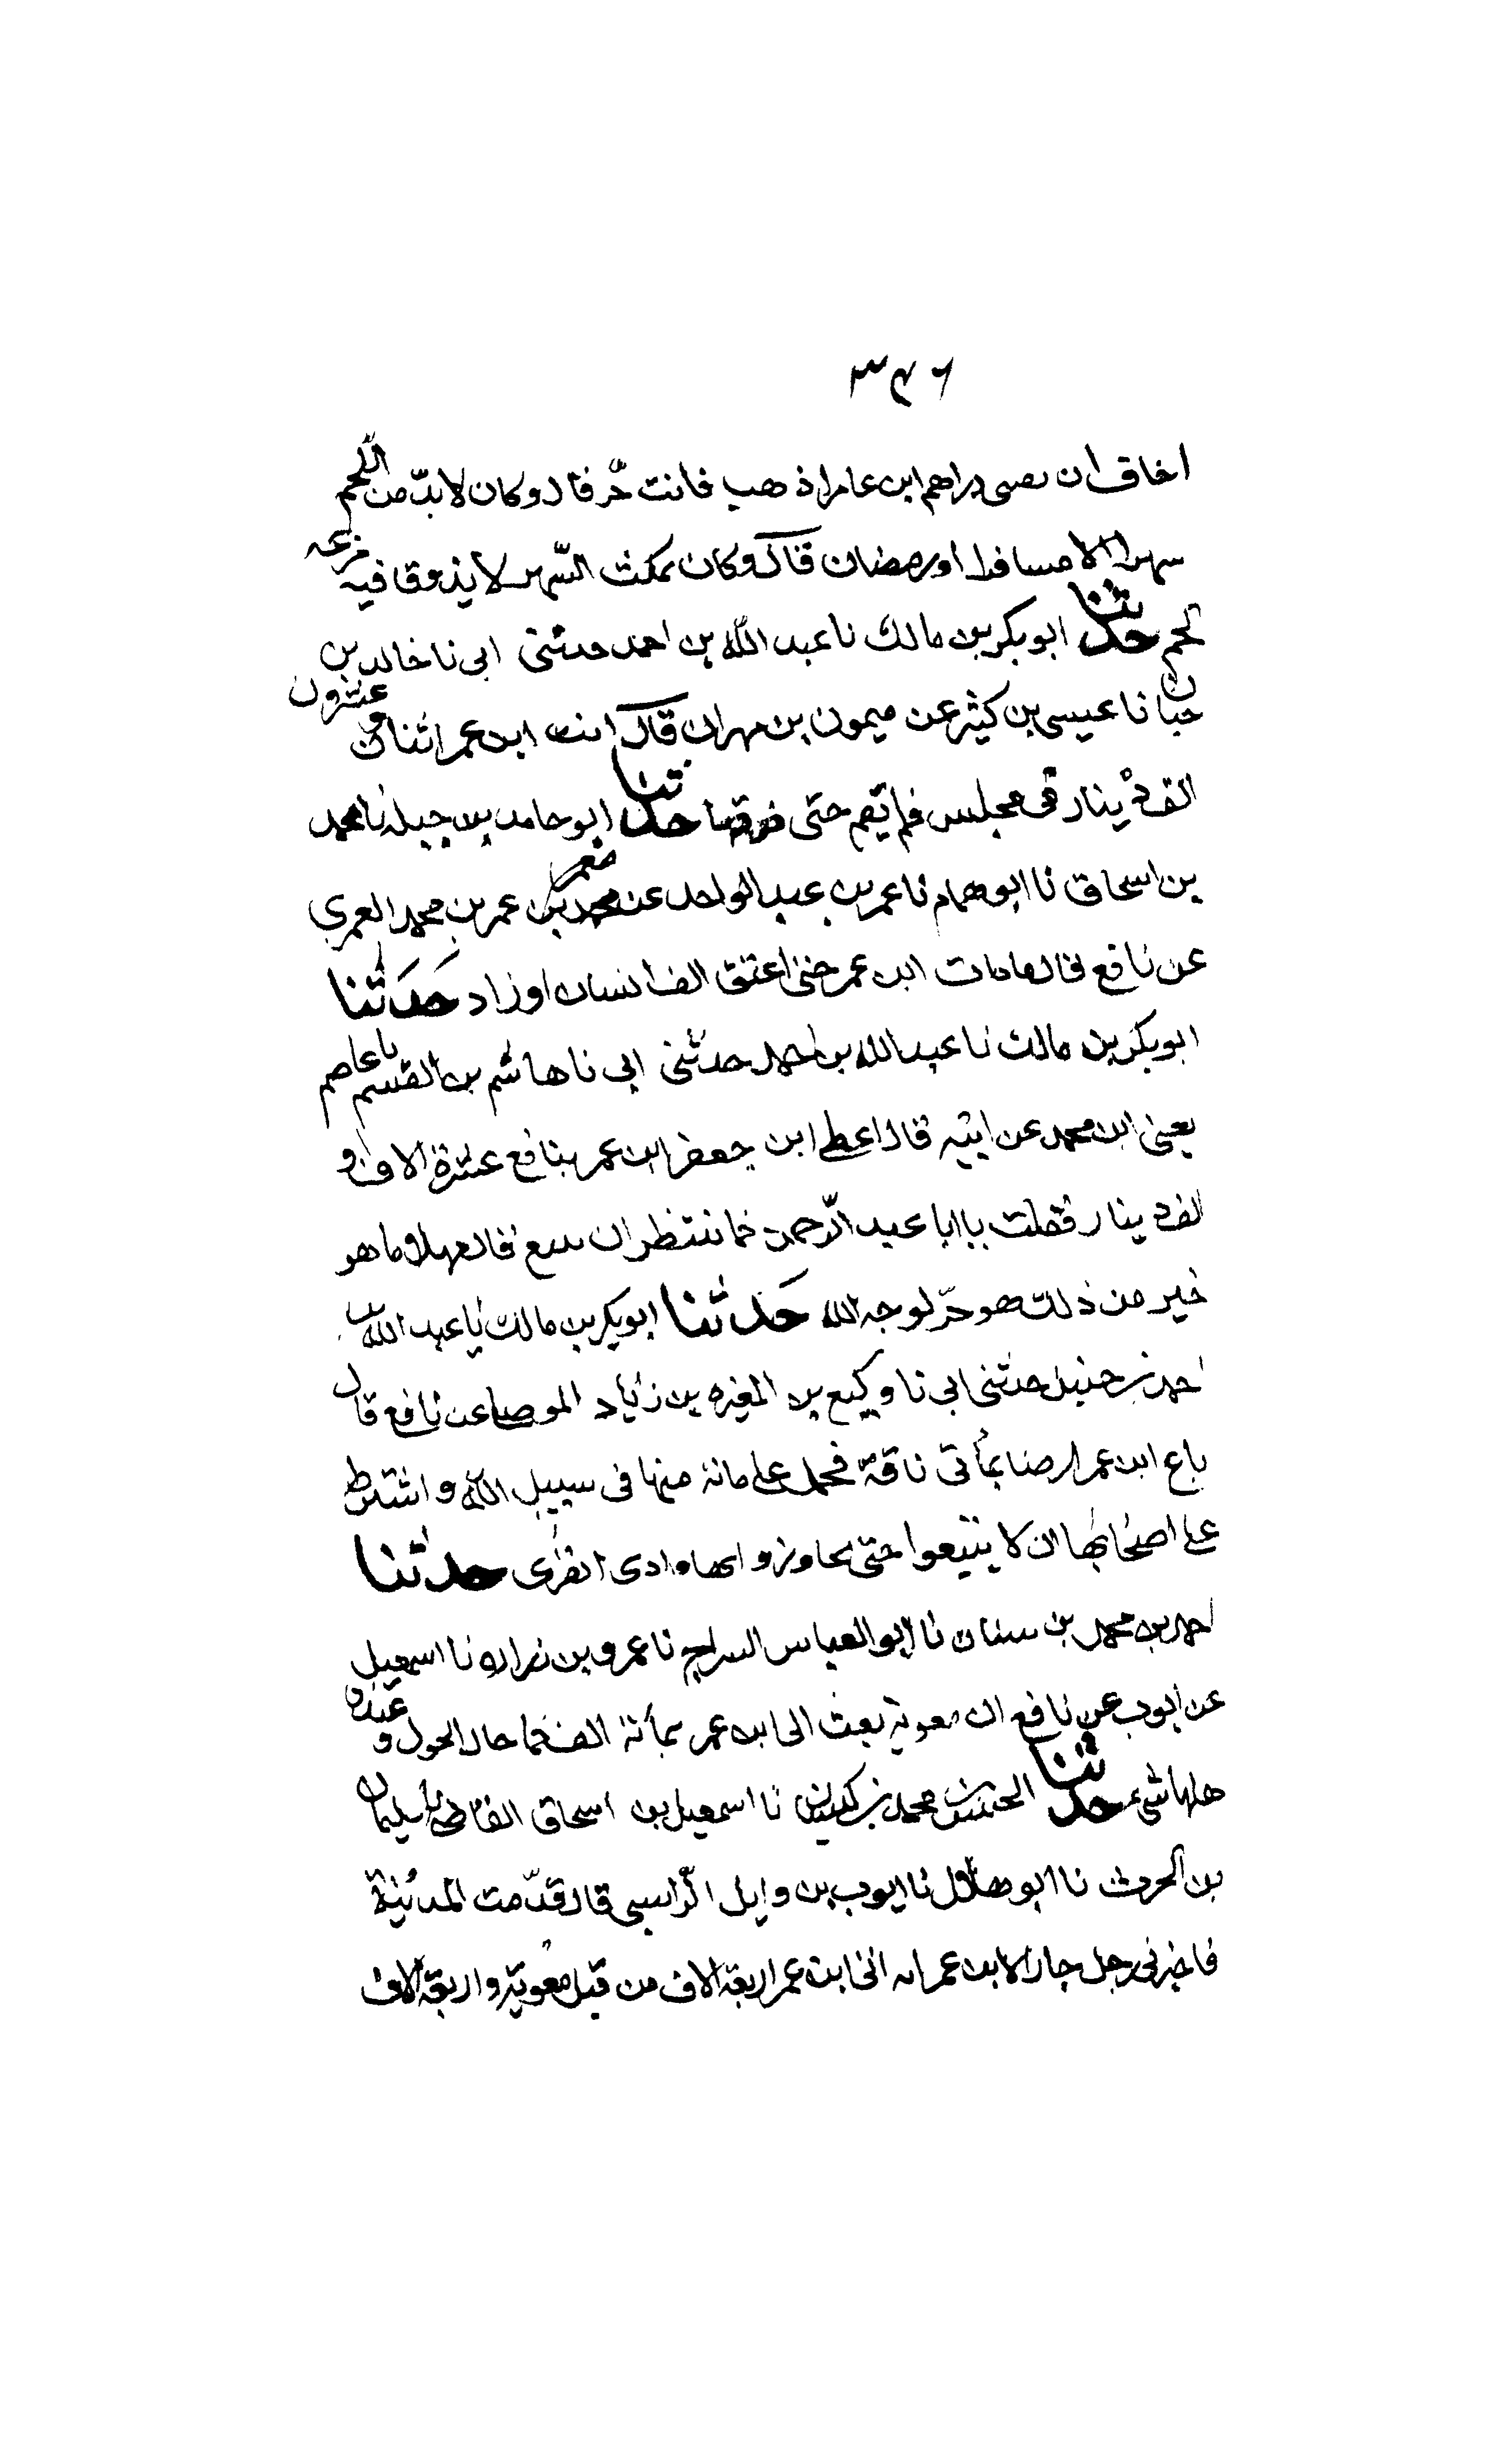 ٣٤٦
اخاف ان دراهم ابن عامر اذهب فانت حرّ قال وكان لا بدّ من اللّحم
شهرا الا مسافرا او رمضان قال وكان يمكث الشّهر لا يذوق فيه مزعه
لحم حدثنا ابو بكر بن مالك نا عبد اللّه بن احمد حدثنى ابى نا خالد بن
حبان نا عيسى بن كثير عن ميمون بن مهران قال اتت ابن عمر اثنان وعشرون
الف دينار فى مجلس فلم يقم حتى فرقها حدثنا ابو حامد بن جبلة نا محمد
بن اسحاق نا ابو همام نا عمر بن عبد الواحد عن محمد بن عمر بن محمد العمري
عن نافع قال ما مات ابن عمر حتى اعتق الف انسان او زاد حَدَثنا
ابو بكر بن مالك نا عبد الله بن احمد حدثنى ابى نا هاشم بن القسم نا عاصم
يعنى ابن محمد عن ابيه قال اعطى ابن جعفر ابن عمر بنافع عشرة الاف او
الف دينار فقلت يا ابا عبد الرّحمن فما تنتظر ان تبيع قال فهلا ما هو
خير من ذلك هو حرّ لوجه الله حَدثنا ابو بكر بن مالك نا عبد الله بن
احمد بن حنبل حدثنى ابى نا وكيع بن المغيره بن زياد الموصلى عن نافع قال
باع ابن عمر ارضا بمأتى ناقة فحمل على مائة منها فى سبيل الله واشترط
على اصحابها ان لا يبيعوا حتى يجاوزوا بها وادى القرى حدثنا
احمد بن محمد بن سنان نا ابو العباس السراج نا عمرو بن زراره نا اسمعيل
عن ايوب عن نافع ان معوية بعث الى ابن عمر بمأئة الف فما حال الحول وعنده
منها شئ حدثنا الحسن بن محمد بن كيسان نا اسمعيل بن اسحاق القاضى نا سليمان
بن الحرث نا ابو هلال نا ايوب بن وايل الرّاسبى قال قدّمت المدينة
فاخبرنى رجل جار لابن عمر انه اتى ابن عمر اربعة الاف من قبل معوية واربعة الاف